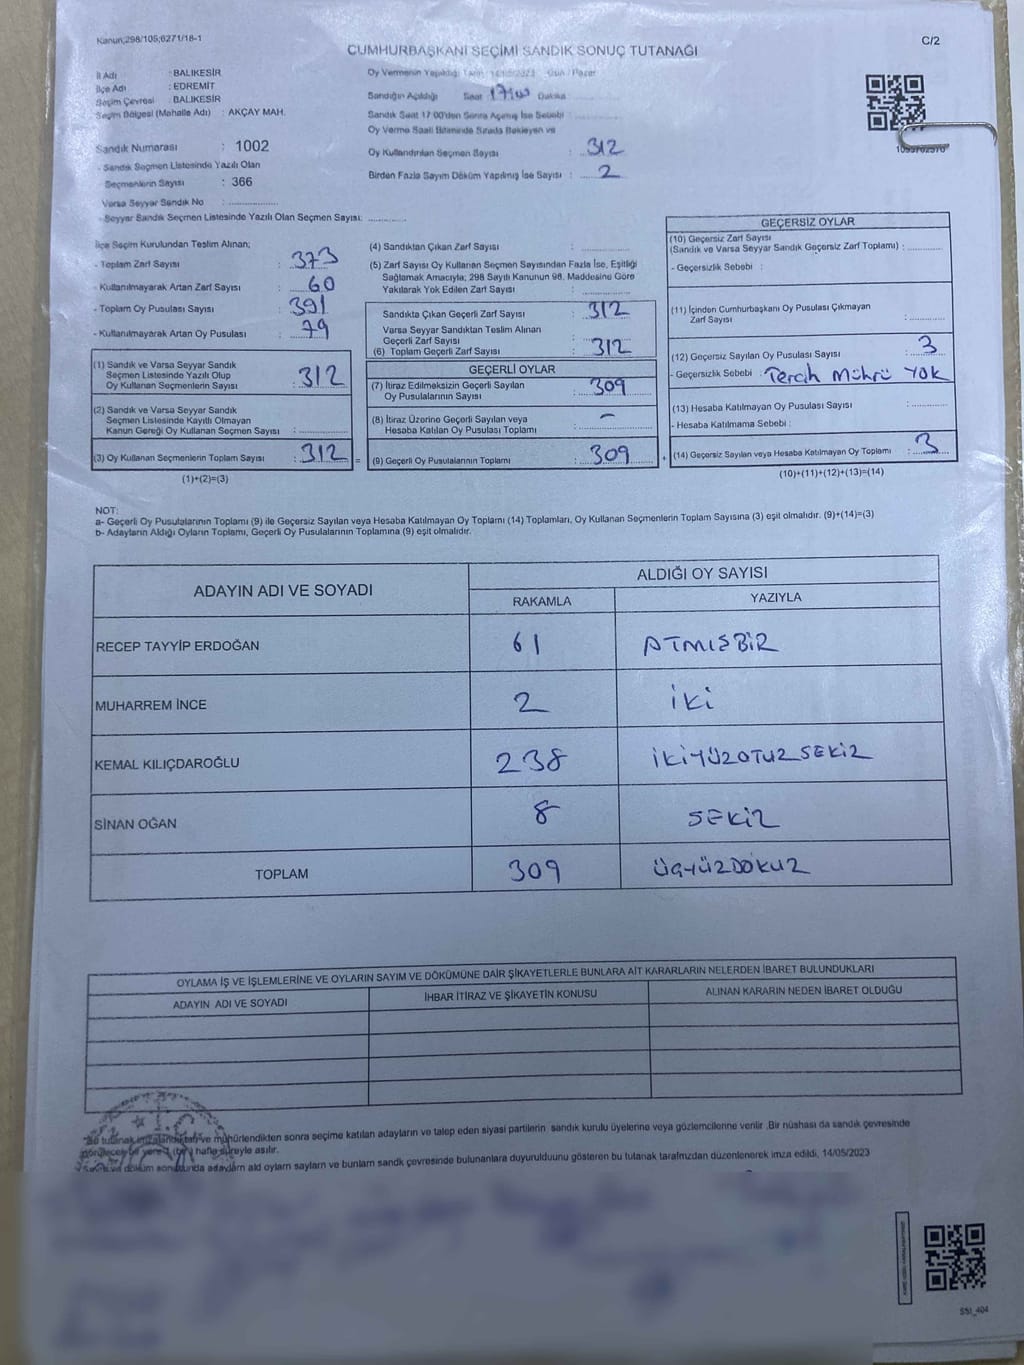 Kanun;298/105;6271/18-1
C/2
CUMHURBAŞKANI SEÇİMİ SANDIK SONUÇ TUTANAĞI
İl Adı : BALIKESİR
İlçe Adı : EDREMİT
Seçim Çevresi : BALIKESİR
Seçim Bölgesi (Mahalle Adı) : AKÇAY MAH.
Sandık Numarası : 1002
- Sandık Seçmen Listesinde Yazılı Olan
Seçmenlerin Sayısı : 366
Varsa Seyyar Sandık No :
- Seyyar Sandık Seçmen Listesinde Yazılı Olan Seçmen Sayısı:
Oy Vermenin Yapıldığı Gün : Pazar
Sandığın Açıldığı Saat Dakika
Sandık Saat 17:00'den Sonra Açılmış İse Sebebi :
Oy Verme Saati Bitiminde Sırada Bekleyen ve
Oy Kullandırılan Seçmen Sayısı : 312
Birden Fazla Sayım Döküm Yapılmış İse Sayısı : 2
İlçe Seçim Kurulundan Teslim Alınan;
- Toplam Zarf Sayısı : 373
- Kullanılmayarak Artan Zarf Sayısı : 60
- Toplam Oy Pusulası Sayısı : 391
- Kullanılmayarak Artan Oy Pusulası : 79
(1) Sandık ve Varsa Seyyar Sandık
Seçmen Listesinde Yazılı Olup
Oy Kullanan Seçmenlerin Sayısı : 312
(2) Sandık ve Varsa Seyyar Sandık
Seçmen Listesinde Kayıtlı Olmayan
Kanun Gereği Oy Kullanan Seçmen Sayısı :
(3) Oy Kullanan Seçmenlerin Toplam Sayısı : 312 =
(1)+(2)=(3)
(4) Sandıktan Çıkan Zarf Sayısı :
(5) Zarf Sayısı Oy Kullanan Seçmen Sayısından Fazla İse, Eşitliği
Sağlamak Amacıyla; 298 Sayılı Kanunun 98. Maddesine Göre
Yakılarak Yok Edilen Zarf Sayısı :
Sandıkta Çıkan Geçerli Zarf Sayısı : 312
Varsa Seyyar Sandıktan Teslim Alınan
Geçerli Zarf Sayısı :
(6) Toplam Geçerli Zarf Sayısı : 312
GEÇERLİ OYLAR
(7) İtiraz Edilmeksizin Geçerli Sayılan
Oy Pusulalarının Sayısı : 309
(8) İtiraz Üzerine Geçerli Sayılan veya
Hesaba Katılan Oy Pusulası Toplamı : –
(9) Geçerli Oy Pusulalarının Toplamı : 309 +
GEÇERSİZ OYLAR
(10) Geçersiz Zarf Sayısı
(Sandık ve Varsa Seyyar Sandık Geçersiz Zarf Toplamı) :
- Geçersizlik Sebebi :
(11) İçinden Cumhurbaşkanı Oy Pusulası Çıkmayan
Zarf Sayısı :
(12) Geçersiz Sayılan Oy Pusulası Sayısı : 3
- Geçersizlik Sebebi : Tercih Mührü Yok
(13) Hesaba Katılmayan Oy Pusulası Sayısı :
- Hesaba Katılmama Sebebi :
(14) Geçersiz Sayılan veya Hesaba Katılmayan Oy Toplamı : 3
(10)+(11)+(12)+(13)=(14)
NOT:
a- Geçerli Oy Pusulalarının Toplamı (9) ile Geçersiz Sayılan veya Hesaba Katılmayan Oy Toplamı (14) Toplamları, Oy Kullanan Seçmenlerin Toplam Sayısına (3) eşit olmalıdır. (9)+(14)=(3)
b- Adayların Aldığı Oyların Toplamı, Geçerli Oy Pusulalarının Toplamına (9) eşit olmalıdır.
ADAYIN ADI VE SOYADI ALDIĞI OY SAYISI
RAKAMLA YAZIYLA
RECEP TAYYİP ERDOĞAN 61 ATMIŞBİR
MUHARREM İNCE 2 İKİ
KEMAL KILIÇDAROĞLU 238 İKİYÜZOTUZSEKİZ
SİNAN OĞAN 8 SEKİZ
TOPLAM 309 ÜÇYÜZDOKUZ
OYLAMA İŞ VE İŞLEMLERİNE VE OYLARIN SAYIM VE DÖKÜMÜNE DAİR ŞİKAYETLERLE BUNLARA AİT KARARLARIN NELERDEN İBARET BULUNDUKLARI
ADAYIN ADI VE SOYADI İHBAR İTİRAZ VE ŞİKAYETİN KONUSU ALINAN KARARIN NEDEN İBARET OLDUĞU
*Bu tutanak imzalandıktan ve mühürlendikten sonra seçime katılan adayların ve talep eden siyasi partilerin sandık kurulu üyelerine veya gözlemcilerine verilir .Bir nüshası da sandık çevresinde
görülecek bir yere 1 (bir) hafta süreyle asılır.
döküm sonunda adayların ald oyların sayları ve bunların sandk çevresinde bulunanlara duyurulduunu gösteren bu tutanak tarafmzdan düzenlenerek imza edildi, 14/05/2023
SSI_404